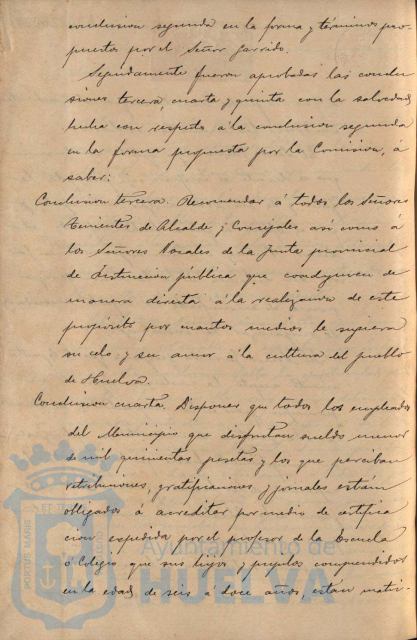 conclusion segunda en la forma y términos pro-
puestos por el Señor Garrido.
Seguidamente fueron aprobadas las conclu-
siones tercera, cuarta y quinta con la salvedad
hecha con respecto á la conclusion segunda
en la forma propuesta por la Comision, á
saber:
Conclusion tercera. Recomendar á todos los Señores
Tenientes de Alcalde y Concejales asi como á
los Señores Vocales de la Junta provincial
de Instruccion pública que coadyuven de
manera directa á la realizacion de este
propósito por cuantos medios le sugiera
su celo y su amor á la cultura del pueblo
de Huelva.
Conclusion cuarta. Disponer que todos los empleados
del Municipio que disfrutan sueldo menor
de mil quinientas pesetas y los que perciban
retribuciones, gratificaciones y jornales están
obligados á acreditar por medio de certifica
cion expedida por el profesor de la Escuela
ó Colegio que sus hijos y pupilos comprendidos
en la edad de seis a doce años, estan matri-
Ayuntamiento de
HUELVA
PORTUS MARIS